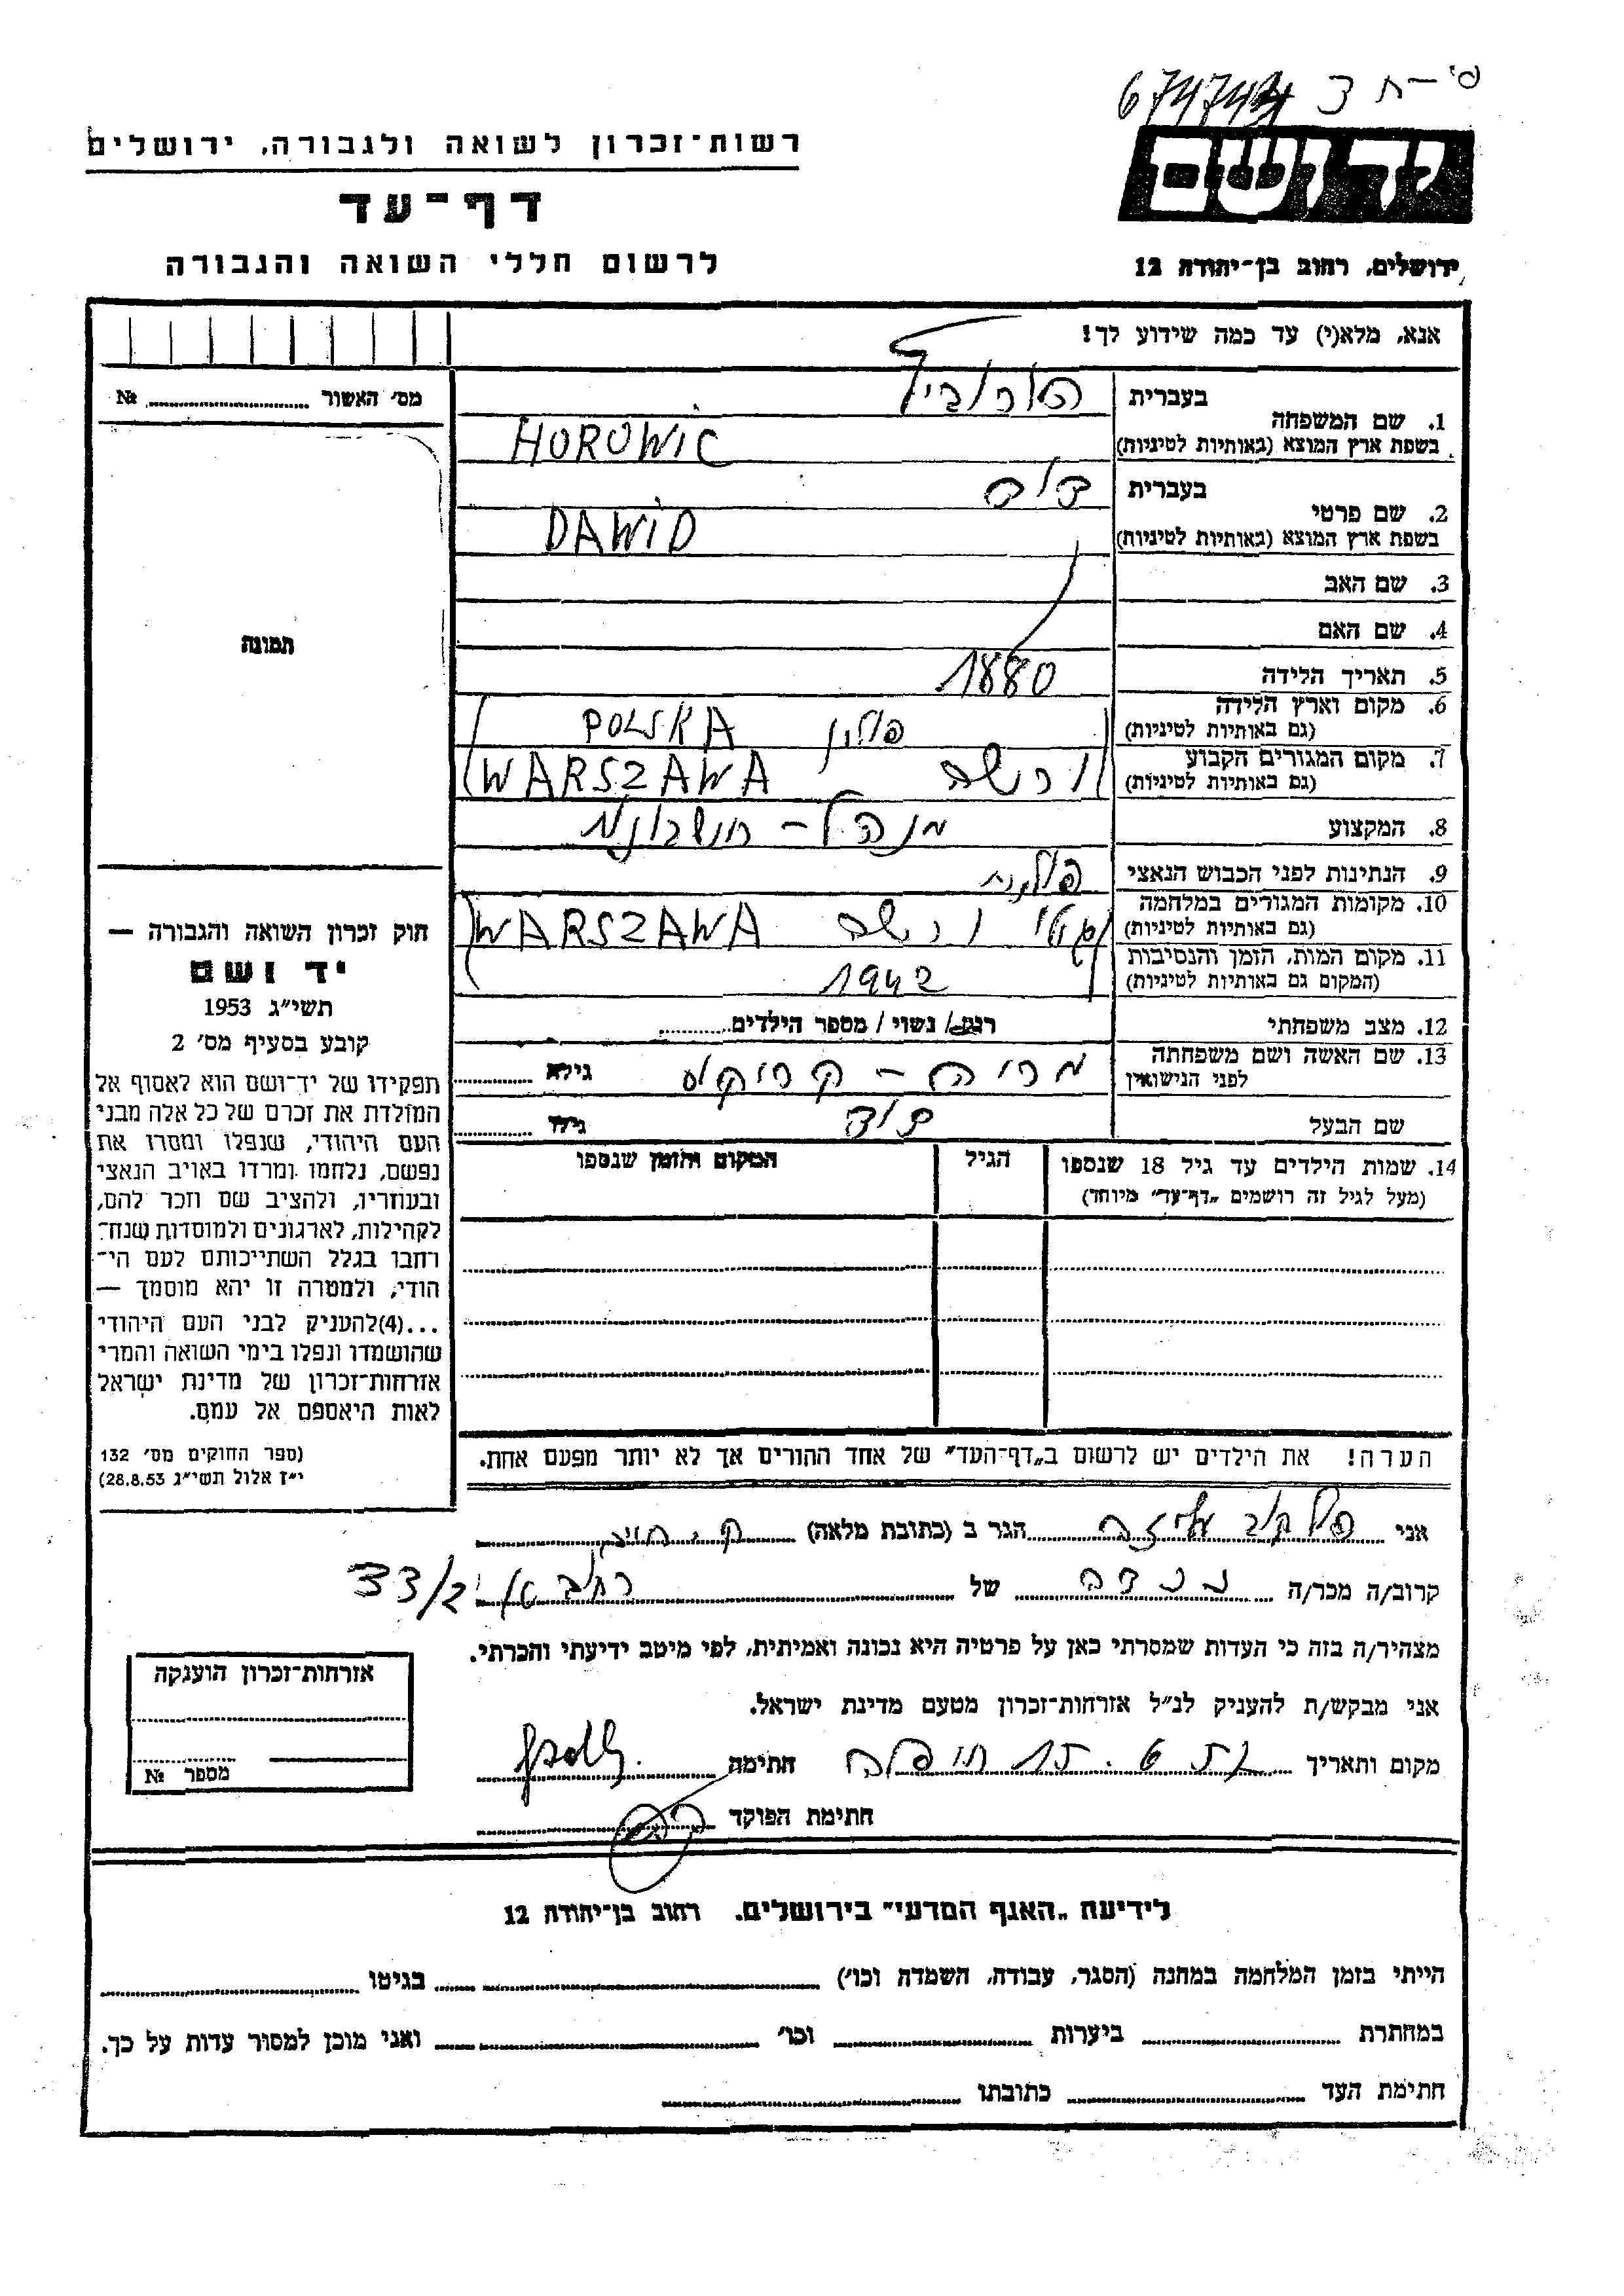 פ'-ח 3
רשות-זכרון לשואה ולגבורה, ירושלים
דף-עד
לרשום חללי השואה והגבורה
יד ושם
ירושלים, רחוב בן-יהודה 12
אנא, מלא(י) עד כמה שידוע לך!
מס' האשור № ....................
תמונה
1. שם המשפחה
בעברית הורוביץ
בשפת ארץ המוצא (באותיות לטיניות) HOROWIC
2. שם פרטי
בעברית דוד
בשפת ארץ המוצא (באותיות לטיניות) DAWID
3. שם האב
4. שם האם
5. תאריך הלידה 1880
6. מקום וארץ הלידה
(גם באותיות לטיניות) פולין POLSKA
7. מקום המגורים הקבוע
(גם באותיות לטיניות) ורשה WARSZAWA
8. המקצוע מנהל - חשבונות
9. הנתינות לפני הכבוש הנאצי פולנית
10. מקומות המגורים במלחמה
(גם באותיות לטיניות) גטו ורשה WARSZAWA
11. מקום המות, הזמן והנסיבות
(המקום גם באותיות לטיניות) 1942
12. מצב משפחתי רווק / נשוי / מספר הילדים..........
13. שם האשה ושם משפחתה
לפני הנישואין מריה - גילא ..........
שם הבעל דוד גילו ..........
14. שמות הילדים עד גיל 18 שנספו
(מעל לגיל זה רושמים "דף-עד" מיוחד)
הגיל
המקום והזמן שנספו
הערה! את הילדים יש לרשום ב"דף-העד" של אחד ההורים אך לא יותר מפעם אחת.
חוק זכרון השואה והגבורה —
יד ושם
תשי"ג 1953
קובע בסעיף מס' 2
תפקידו של יד-ושם הוא לאסוף אל
המולדת את זכרם של כל אלה מבני
העם היהודי, שנפלו ומסרו את
נפשם, נלחמו ומרדו באויב הנאצי
ובעוזריו, ולהציב שם וזכר להם,
לקהילות, לארגונים ולמוסדות שנח-
רחבו בגלל השתייכותם לעם הי-
הודי, ולמטרה זו יהא מוסמך —
...(4)להעניק לבני העם היהודי
שהושמדו ונפלו בימי השואה והמרי
אזרחות-זכרון של מדינת ישראל
לאות היאספם אל עמם.
(ספר החוקים מס' 132
י"ז אלול תשי"ג 28.8.53)
אני עליזה הגר ב (כתובת מלאה) ק. חיים
קרוב/ה מכר/ה נכדה של רחוב 33/2
מצהיר/ה בזה כי העדות שמסרתי כאן על פרטיה היא נכונה ואמיתית, לפי מיטב ידיעתי והכרתי.
אני מבקש/ת להעניק לנ"ל אזרחות-זכרון מטעם מדינת ישראל.
מקום ותאריך חתימה
חתימת הפוקד
אזרחות-זכרון הוענקה
מספר №
לידיעת "האגף המדעי" בירושלים. רחוב בן-יהודה 12
הייתי בזמן המלחמה במחנה (הסגר, עבודה, השמדה וכו') .......... בגיטו ..........
במחתרת .......... ביערות .......... וכו' .......... ואני מוכן למסור עדות על כך.
חתימת העד .......... כתובתו ..........